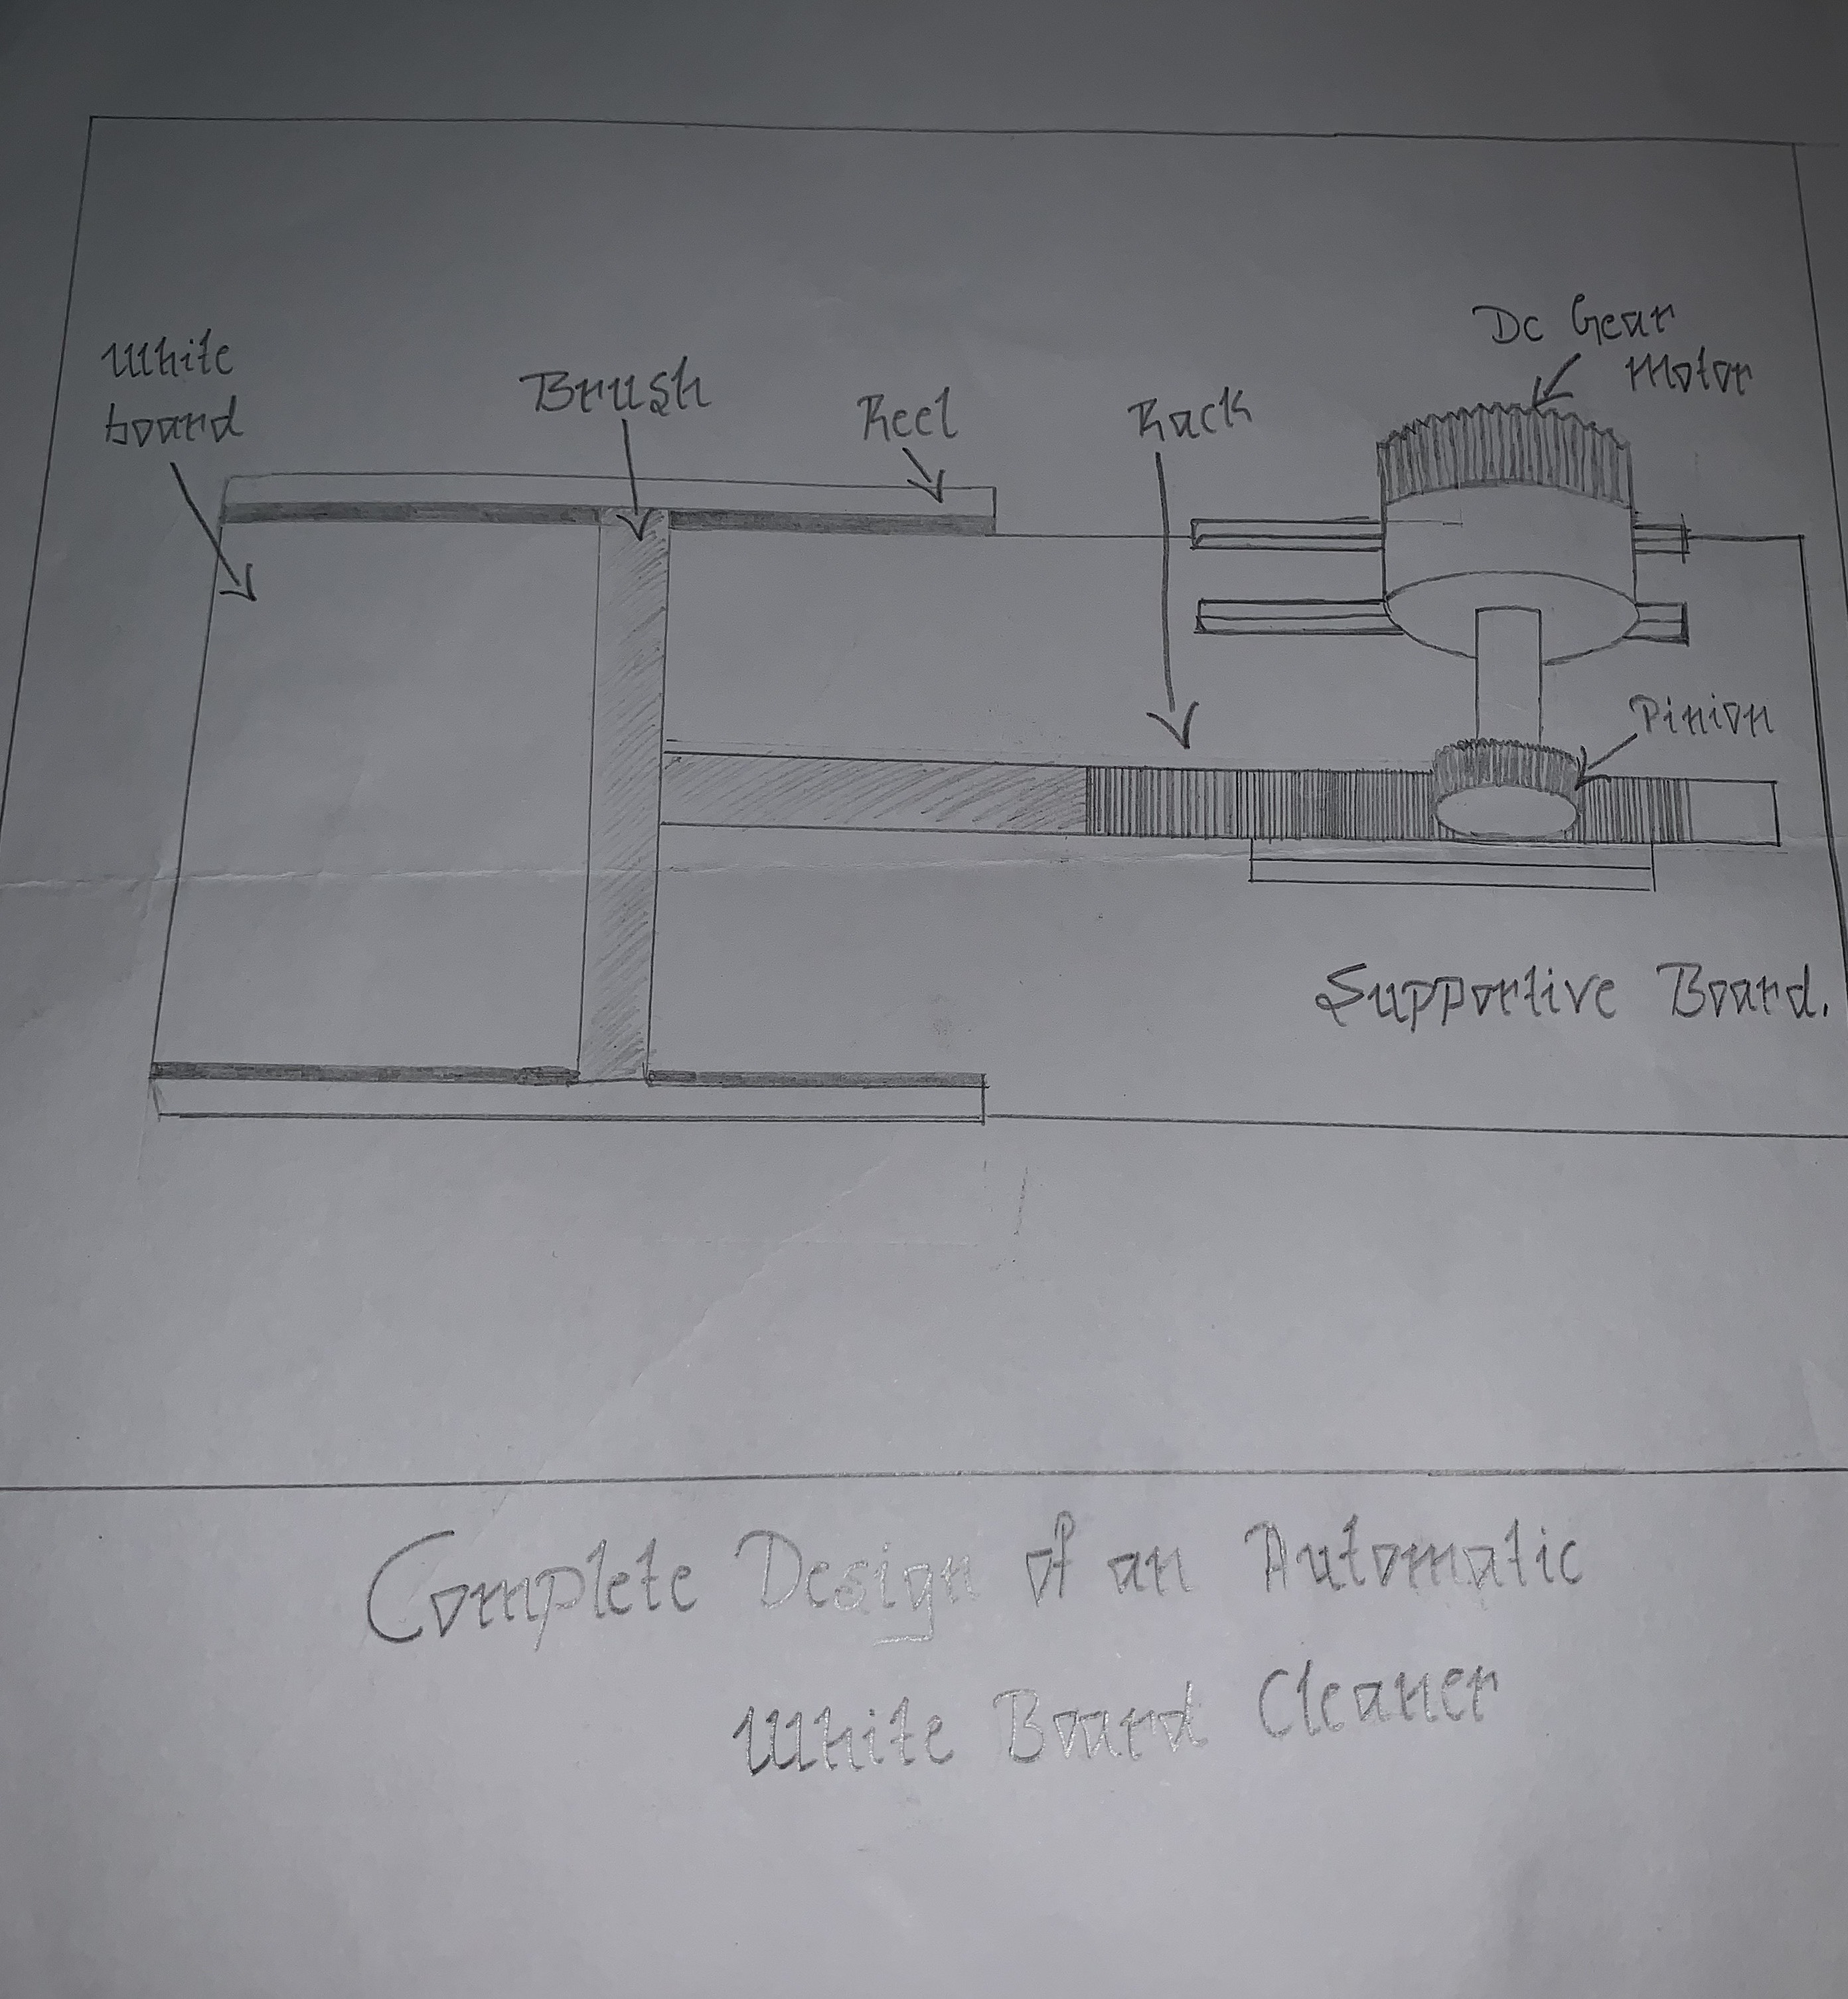 White
board
Brush
Reel
Rack
Dc Gear
Motor
Pinion
Supportive Board.
Complete Design of an Automatic
White Board Cleaner